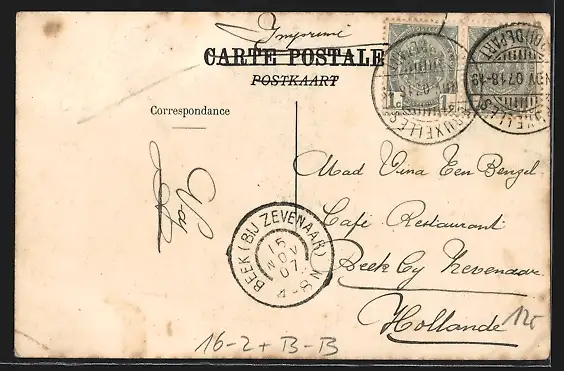 Imprimé
CARTE POSTALE
POSTKAART
Correspondance
1c 1c
BRUXELLES
NOV 07 18-19
DEPART
Mad Vina Ten Bengel
Café Restaurant
Beek by Zevenaar
Hollande
BEEK (BIJ ZEVENAAR)
15
NOV
07
4-8N
16-2+B-B